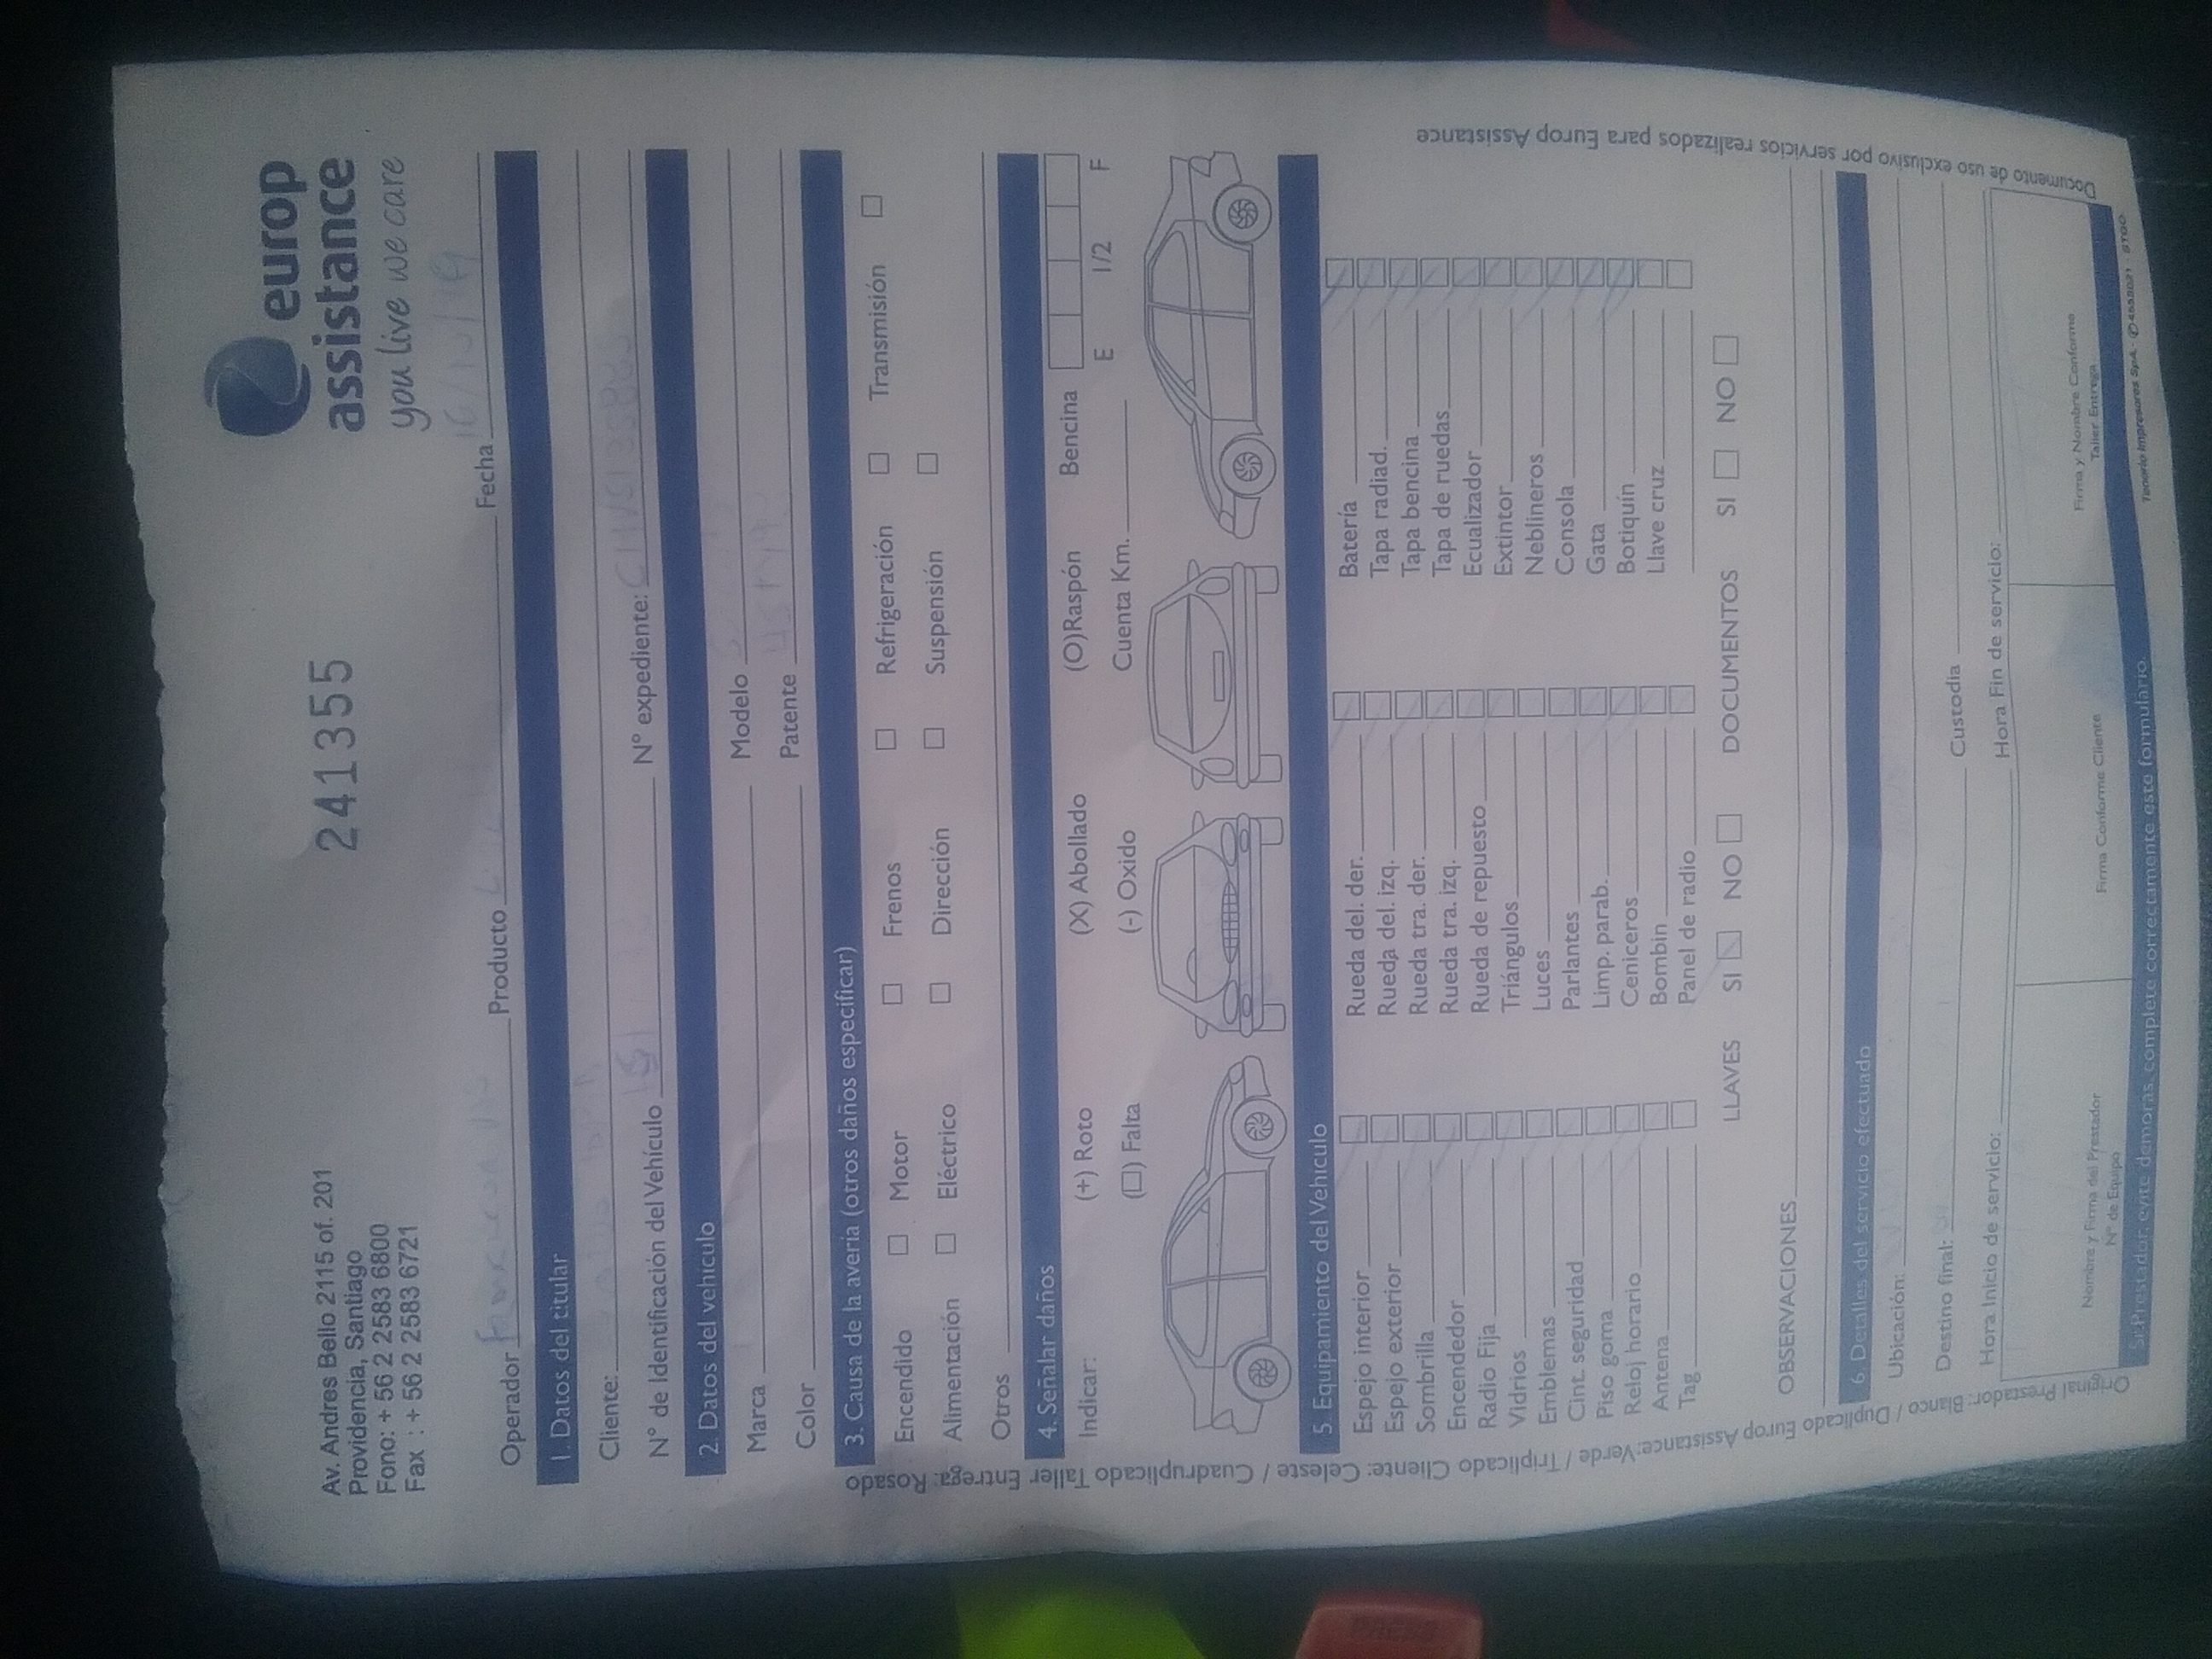 Av. Andres Bello 2115 of. 201
Providencia, Santiago
Fono: + 56 2 2583 6800
Fax : + 56 2 2583 6721
241355
europ
assistance
you live we care
Operador Producto Fecha
1. Datos del titular
Cliente:
N° de Identificación del Vehículo N° expediente:
2. Datos del vehículo
Marca Modelo
Color Patente
3. Causa de la avería (otros daños especificar)
Encendido Motor Frenos Refrigeración Transmisión
Alimentación Eléctrico Dirección Suspensión
Otros
4. Señalar daños
Indicar: (+) Roto (X) Abollado (O)Raspón Bencina
E 1/2 F
(□) Falta (-) Oxido Cuenta Km.
5. Equipamiento del Vehículo
Espejo interior Rueda del. der. Batería
Espejo exterior Rueda del. izq. Tapa radiad.
Sombrilla Rueda tra. der. Tapa bencina
Encendedor Rueda tra. izq. Tapa de ruedas
Radio Fija Rueda de repuesto Ecualizador
Vidrios Triángulos Extintor
Emblemas Luces Neblineros
Cint. seguridad Parlantes Consola
Piso goma Limp. parab. Gata
Reloj horario Ceniceros Botiquín
Antena Bombin Llave cruz
Tag Panel de radio
LLAVES SI NO DOCUMENTOS SI NO
OBSERVACIONES
6. Detalles del servicio efectuado
Ubicación:
Destino final: Custodia
Hora Inicio de servicio: Hora Fin de servicio:
Nombre y Firma del Prestador
N° de Equipo
Firma Conforme Cliente
Firma y Nombre Conforme
Taller Entrega
Sr. Prestador: evite demoras, complete correctamente este formulario.
Original Prestador: Blanco / Duplicado Europ Assistance: Verde / Triplicado Cliente: Celeste / Cuadruplicado Taller Entrega: Rosado
Documento de uso exclusivo por servicios realizados para Europ Assistance
PRESS